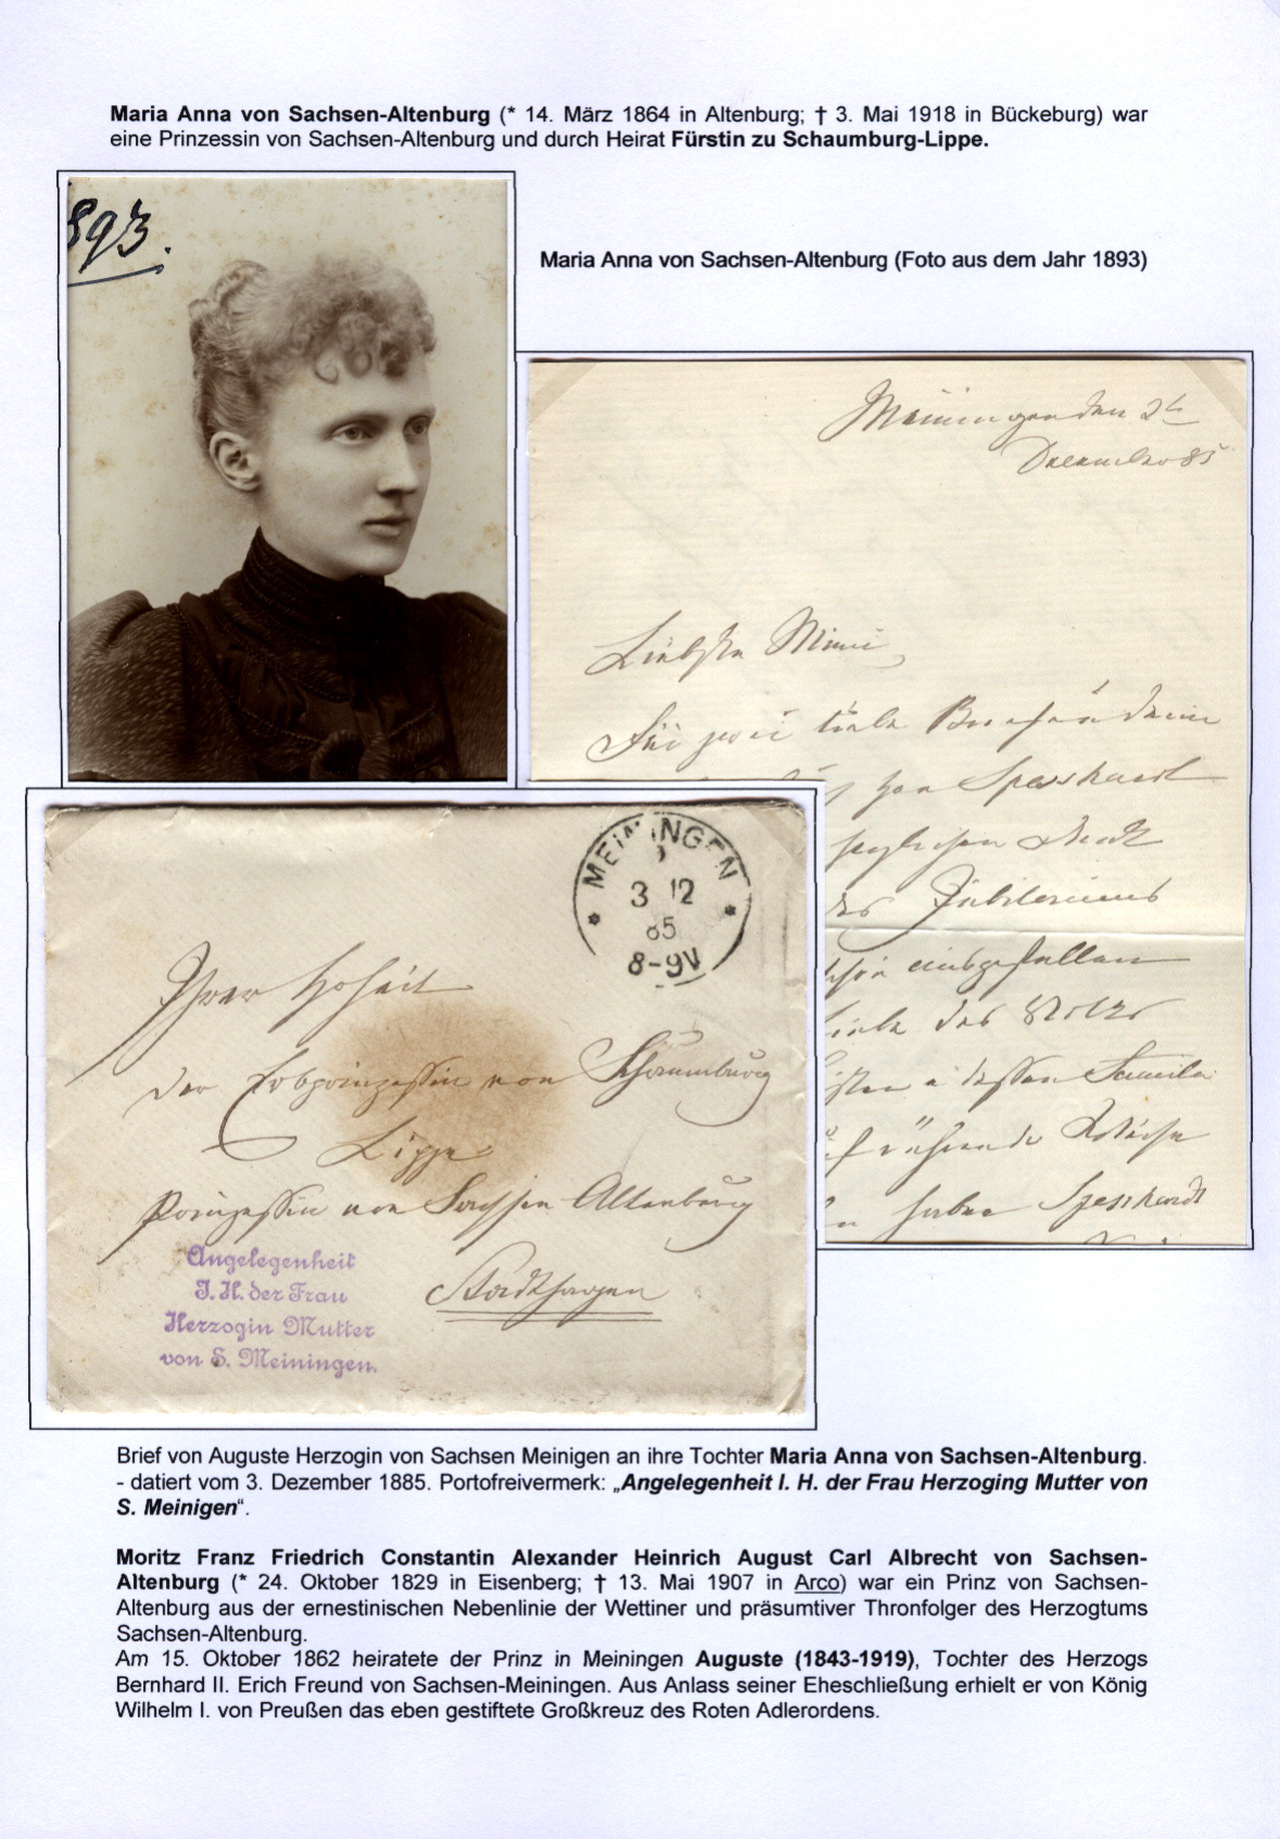 Maria Anna von Sachsen-Altenburg (* 14. März 1864 in Altenburg; † 3. Mai 1918 in Bückeburg) war
eine Prinzessin von Sachsen-Altenburg und durch Heirat Fürstin zu Schaumburg-Lippe.
893.
Maria Anna von Sachsen-Altenburg (Foto aus dem Jahr 1893)
Meiningen den 2t
December 85
Liebste Mimi
Für zwei liebe Briefe
Spesshardt
des Jubiläums
ausgefallen
liebe des
rührende
haben Spesshardt
MEININGEN
3 12
85
8-9V
Ihrer Hoheit
der Erbprinzessin von Schaumburg
Lippe
Prinzessin von Sachsen Altenburg
Stadthagen
Angelegenheit
J. H. der Frau
Herzogin Mutter
von S. Meiningen.
Brief von Auguste Herzogin von Sachsen Meinigen an ihre Tochter Maria Anna von Sachsen-Altenburg.
- datiert vom 3. Dezember 1885. Portofreivermerk: „Angelegenheit I. H. der Frau Herzoging Mutter von
S. Meinigen“.
Moritz Franz Friedrich Constantin Alexander Heinrich August Carl Albrecht von Sachsen-
Altenburg (* 24. Oktober 1829 in Eisenberg; † 13. Mai 1907 in Arco) war ein Prinz von Sachsen-
Altenburg aus der ernestinischen Nebenlinie der Wettiner und präsumtiver Thronfolger des Herzogtums
Sachsen-Altenburg.
Am 15. Oktober 1862 heiratete der Prinz in Meiningen Auguste (1843-1919), Tochter des Herzogs
Bernhard II. Erich Freund von Sachsen-Meiningen. Aus Anlass seiner Eheschließung erhielt er von König
Wilhelm I. von Preußen das eben gestiftete Großkreuz des Roten Adlerordens.